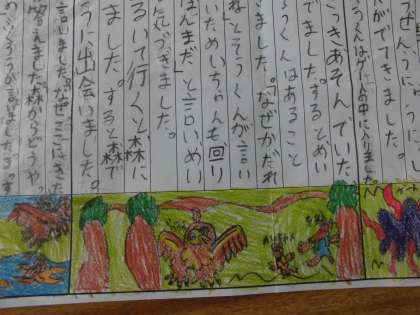 がでてきました。
くんはゲームの中に入りました
きあそんでいた
でました。するとめい
うくんはあること
きました。「なぜかだれ
ねとそうくんが言い
いためいちゃんも回り
ほんまだ」と言いめい
づきました。
るいて行くと森に
ました。すると森で
うに出会いました。
言いました。「なぜここにきた
答えました。「森からどうや
が言いました。「す